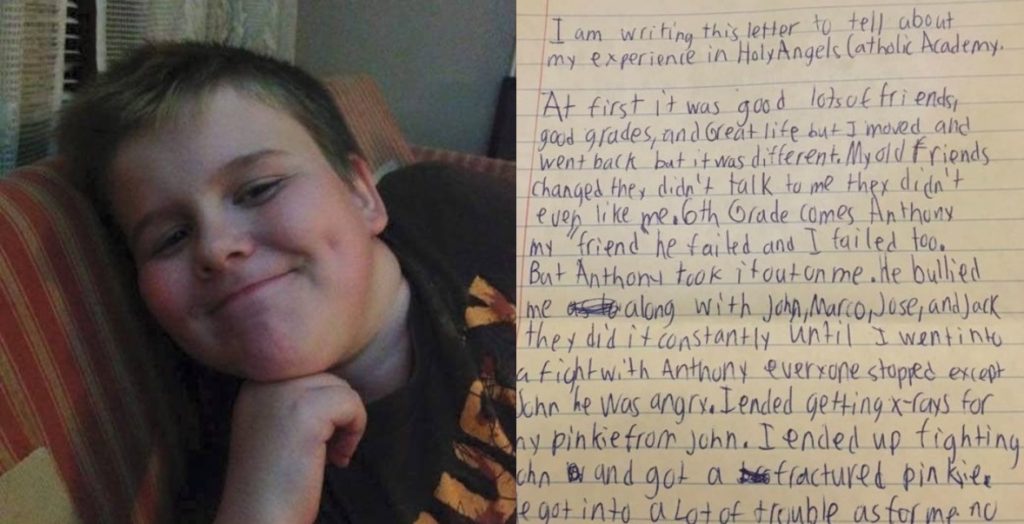 I am writing this letter to tell about
my experience in Holy Angels Catholic Academy.
At first it was good lots of friends,
good grades, and Great life but I moved and
went back but it was different. My old friends
changed they didn't talk to me they didn't
even like me. 6th Grade comes Anthony
my "friend" he failed and I failed too.
But Anthony took it out on me. He bullied
me along with John, Marco, Jose, and Jack
they did it constantly until I went into
a fight with Anthony everyone stopped except
John he was angry. I ended getting x-rays for
my pinkie from John. I ended up fighting
ohn and got a fractured pinkie.
e got into a lot of trouble as for me no